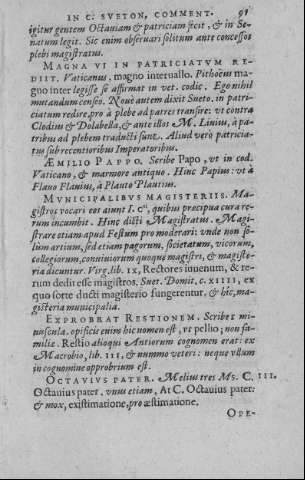 IN C. SVETON, COMMENT. 91
igitur gentem Octauiam & patriciam fecit. & in Se-
natum legit. Sic enim obseruari solitum ante concessos
plebi magistratus.
MAGNA VI IN PATRICIATVM RE-
DIIT. Vaticanus, magno interuallo. Pithoëus ma-
gno inter legisse se affirmat in vet. codic. Ego nihil
mutandum censeo. Nouè autem dixit Sueto. in patri-
ciatum redire, pro à plebe ad patres transire: vt contra
Clodius & Dolabella, & ante illos M. Linius, à pa-
tribus ad plebem traducti sunt. Aliud verò patricia-
tus sub recentioribus Imperatoribus.
ÆMILIO PAPPO. Scribe Papo, vt in cod.
Vaticano, & marmore antiquo. Hinc Papius: vt à
Flauo Flauius, à Plauto Plautius.
MVNICIPALIBVS MAGISTERIIS. Ma-
gistros vocari eos aiunt I. Cⁱ, quibus præcipua cura re-
rum incumbit. Hinc dicti Magistratus. Magi-
strare etiam apud Festum pro moderari: vnde non so-
lùm artium, sed etiam pagorum, societatum, vicorum,
collegiorum, conuiuiorum quoque magistri, & magiste-
ria dicuntur. Virg. lib. IX, Rectores iuuenum, & re-
rum dedit esse magistros. Suet. Domit. c. XIIII, ex
quo forte ducti magisterio fungerentur, & hîc, ma-
gisteria municipalia.
EXPROBRAT RESTIONEM. Scribe: mi-
nuscula. opificis enim hîc nomen est, vt pellio; non fa-
miliæ. Restio alioqui Antiorum cognomen erat: ex
Macrobio, lib. III, & nummo veteri: neque vllum
in cognomine opprobrium est.
OCTAVIVS PATER. Melius tres Ms. C. III.
Octauius pater. vnus etiam, At C. Octauius pater:
& mox, existimatione, pro æstimatione.
OPE-